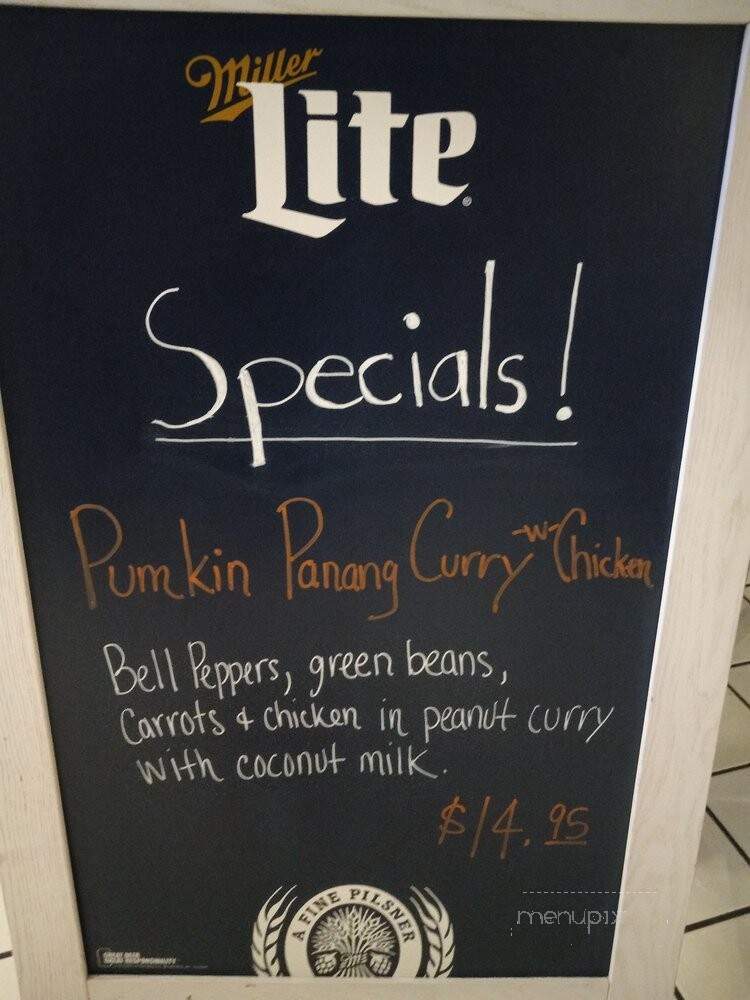 Miller
Lite
Specials!
Pumkin Panang Curry -w- Chicken
Bell Peppers, green beans,
Carrots & chicken in peanut curry
with coconut milk.
$14.95
A FINE PILSNER
menupix
GREAT BEER
GREAT RESPONSIBILITY